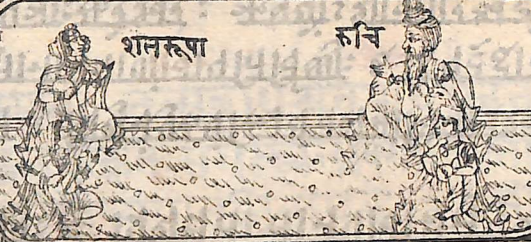 शतरूपा रुचि